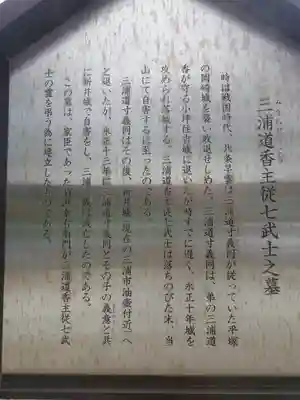 三浦道香主従七武士之墓
時は戦国時代、北条早雲は三浦道寸義同が従っていた平塚
の岡崎城を襲い敗退せしめた。三浦道寸義同は、弟の三浦道
香が守る小坪住吉城に退いたが時すでに遅く、永正十年城を
攻められ落城する。三浦道香主従七武士は落ちのびた末、当
山にて自害するに至ったのである。
三浦道寸義同はその後、新井城(現在の三浦市油壷付近)へ
と退いたが、永正十三年に三浦道寸義同とその子の義意と共
に新井城で自害をし、三浦一族は滅亡したのである。
この墓は、家臣であった が三浦道香主従七武
士の霊を弔う為に建立したものである。